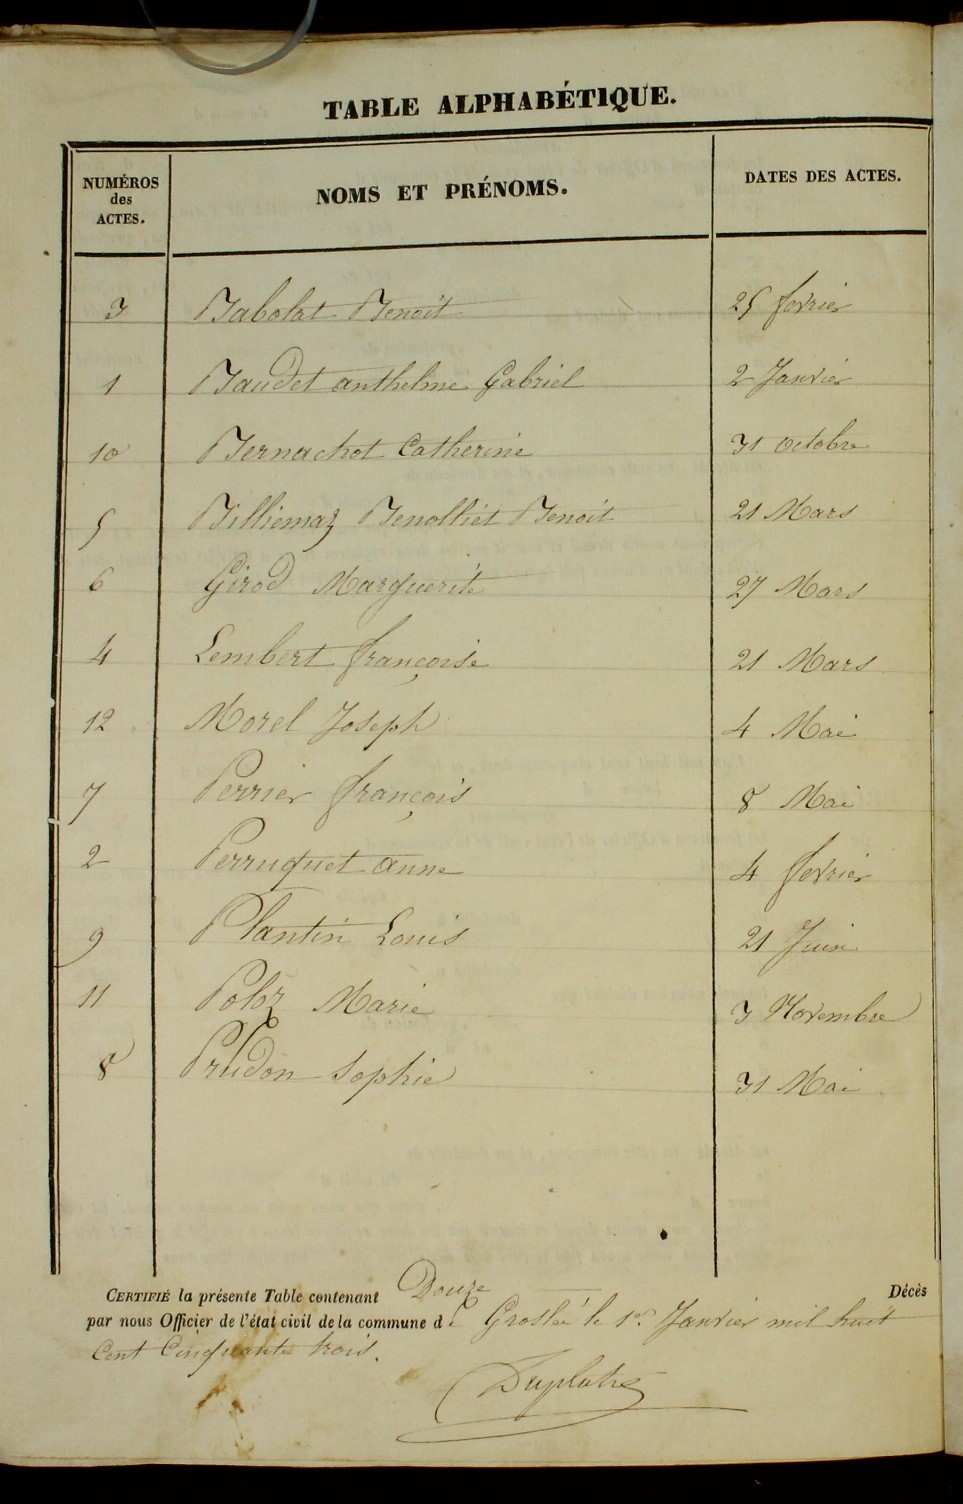 TABLE ALPHABÉTIQUE.
NUMÉROS des ACTES. NOMS ET PRÉNOMS. DATES DES ACTES.
3 Babolat Benoit 25 fevrier
1 Baudet anthelme Gabriel 2 Janvier
10 Bernachot Catherine 31 octobre
5 Billiemaz Benolliet Benoit 21 Mars
6 Girod Marguerite 27 Mars
4 Lembert françoise 21 Mars
12 Morel Joseph 4 Mai
7 Perrier françois 8 Mai
2 Perruquet anne 4 fevrier
9 Plantin Louis 21 Juin
11 Poloz Marie 3 Novembre
8 Prudon Sophie 31 Mai
CERTIFIÉ la présente Table contenant Douze Décès
par nous Officier de l'état civil de la commune de Groslée le 1er Janvier mil huit
Cent Cinquante trois.